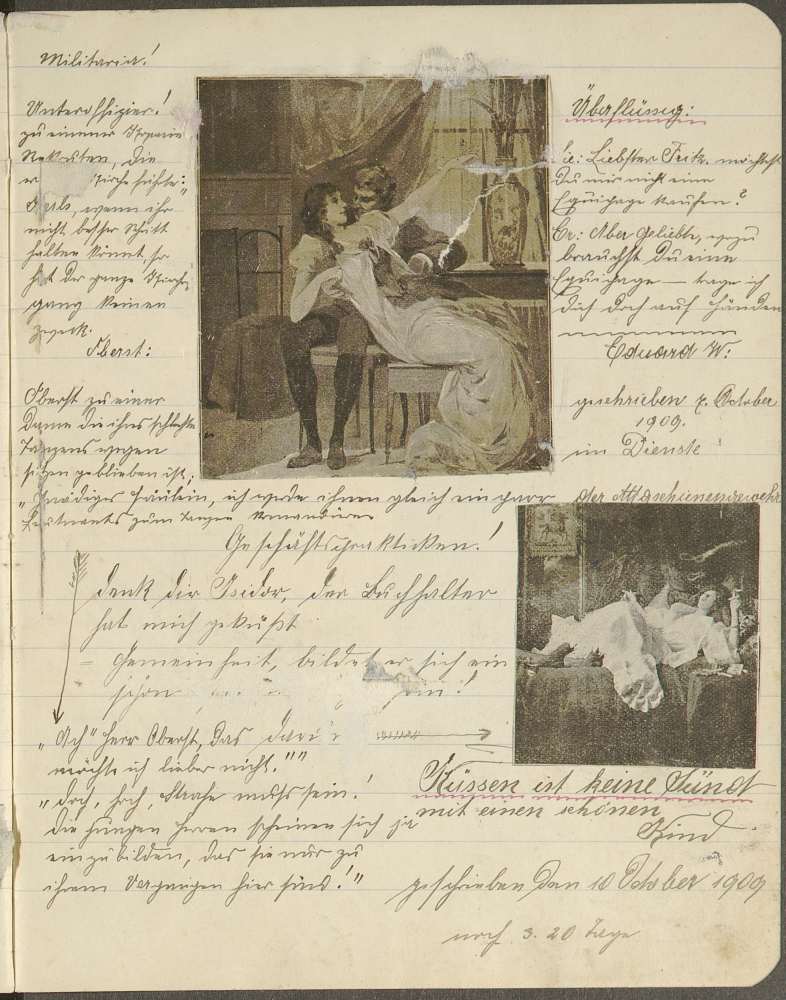 Militaria!
Unteroffizier!
zu einener
Rekruten, die
er
Kerls, wenn ihr
nicht besser Schritt
halten könnt, so
hat der ganze Kirch-
gang keinen
Zweck.
Oberst:
Oberst zu einer
Dame die ihres schlechten
Tanzens wegen
sitzen geblieben ist;
"Gnädiges Fräulein, ich werde ihnen gleich ein paar
Leutnants zum Tanzen
Überflüssig:
Sie: Liebster Fritz, möchtest
Du mir nicht eine
Equipage kaufen?
Er: Aber Geliebte, wozu
brauchst Du eine
Equipage — trage ich
dich doch auf Händen
Eduard W:
geschrieben 7. October
1909.
im Dienste
der
Geschäftspraktiken!
Denk dir Isidor, der Buchhalter
hat mich geküßt
– Gemeinheit, bildet er sich ein
schon
"Ach" Herr Oberst, das
möchte ich lieber nicht.""
"Doch, doch, Strafe muß sein!
Die jungen Herren scheinen sich ja
einzubilden, das sie nur zu
ihrem Vergnügen hier sind!"
Küssen ist keine Sünd
mit einen schönen
Kind
geschrieben den 10 October 1909
noch 3. 20 Tage